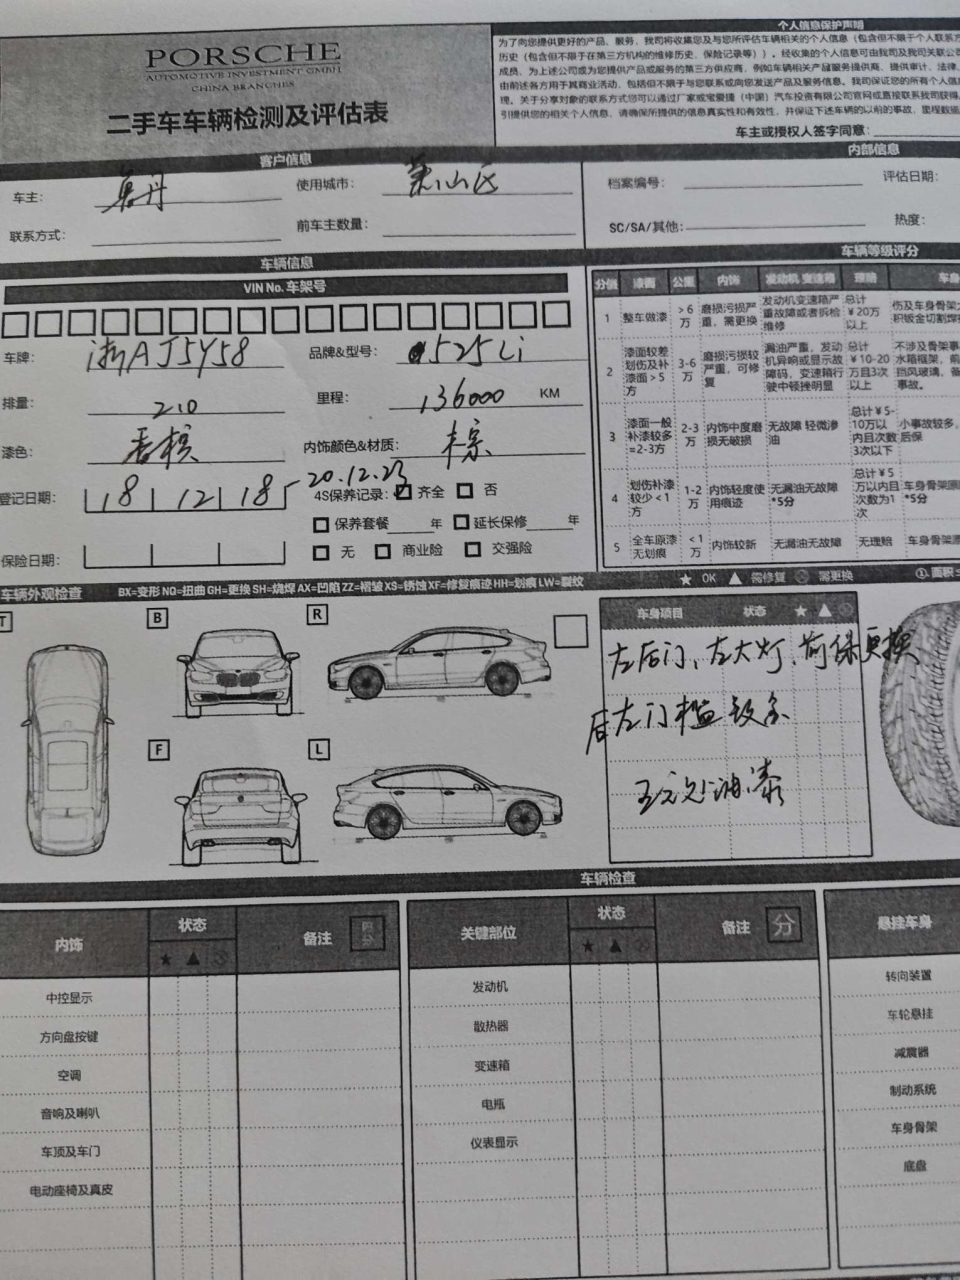 PORSCHE
AUTOMOTIVE INVESTMENT GMBH
CHINA BRANCHES
二手车车辆检测及评估表
个人信息保护声明
为了向您提供更好的产品、服务，我司将收集您及与您所评估车辆相关的个人信息（包含但不限于个人联系方
历史（包含但不限于在第三方机构的维修历史、保险记录等））。经收集的个人信息可由我司及我司关联公司
成员、为上述公司或为您提供产品或服务的第三方供应商，例如车辆相关产品服务提供商、提供审计、法律、
由前述各方用于其商业活动，包括但不限于与您联系或向您发送产品及服务信息。我司保证您的所有个人信息
理。关于分享对象的联系方式您可以通过厂家或宝爱捷（中国）汽车投资有限公司官网或直接联系我司获得。
引提供您的相关个人信息，请确保所提供的信息真实性和有效性，并保证下述车辆的以前的事故，里程数据
车主或授权人签字同意：
客户信息
内部信息
车主： 丹
使用城市： 萧山区
档案编号：
评估日期：
联系方式：
前车主数量：
SC/SA/其他：
热度：
车辆信息
VIN No. 车架号
车牌： 浙A J5Y58
品牌&型号： 525Li
排量： 2.0
里程： 136000 KM
漆色： 香槟
内饰颜色&材质： 棕
20.12.23
登记日期： 18 12 18
4S保养记录： 齐全 否
保养套餐 年 延长保修 年
保险日期：
无 商业险 交强险
车辆等级评分
分值 漆面 公里 内饰 发动机 变速箱 理赔 车身
1 整车做漆 >6万 磨损污损严重，需更换 发动机变速箱严重故障或者拆检维修 总计￥20万以上 伤及车身骨架
2 漆面较差划伤及补漆面>5方 3-6万 磨损污损较严重，可修复 漏油严重，发动机异响或显示故障码，变速箱行驶中顿挫明显 总计￥10-20万且3次以上 不涉及骨架事
3 漆面一般补漆较多=2-3方 2-3万 内饰中度磨损无破损 无故障 轻微渗油 总计￥5-10万以内且次数3次以下 小事故较多，
4 划伤补漆较少<1方 1-2万 内饰轻度使用痕迹 无漏油无故障*5分 总计￥5万以内且次数为1次 车身骨架原
5 全车原漆无划痕 <1万 内饰较新 无漏油无故障 无理赔 车身骨架原
车辆外观检查
BX=变形 NQ=扭曲 GH=更换 SH=烧焊 AX=凹陷 ZZ=褶皱 XS=锈蚀 XF=修复痕迹 HH=划痕 LW=裂纹
★ OK ▲ 需修复 需更换
T
B
R
F
L
车身项目 状态 ★ ▲
左后门、左大灯、前保更换
后左门槛钣金
油漆
车辆检查
内饰 状态 备注
关键部位 状态 备注 分
悬挂车身
★ ▲
★ ▲
中控显示
方向盘按键
空调
音响及喇叭
车顶及车门
电动座椅及真皮
发动机
散热器
变速箱
电瓶
仪表显示
转向装置
车轮悬挂
减震器
制动系统
车身骨架
底盘